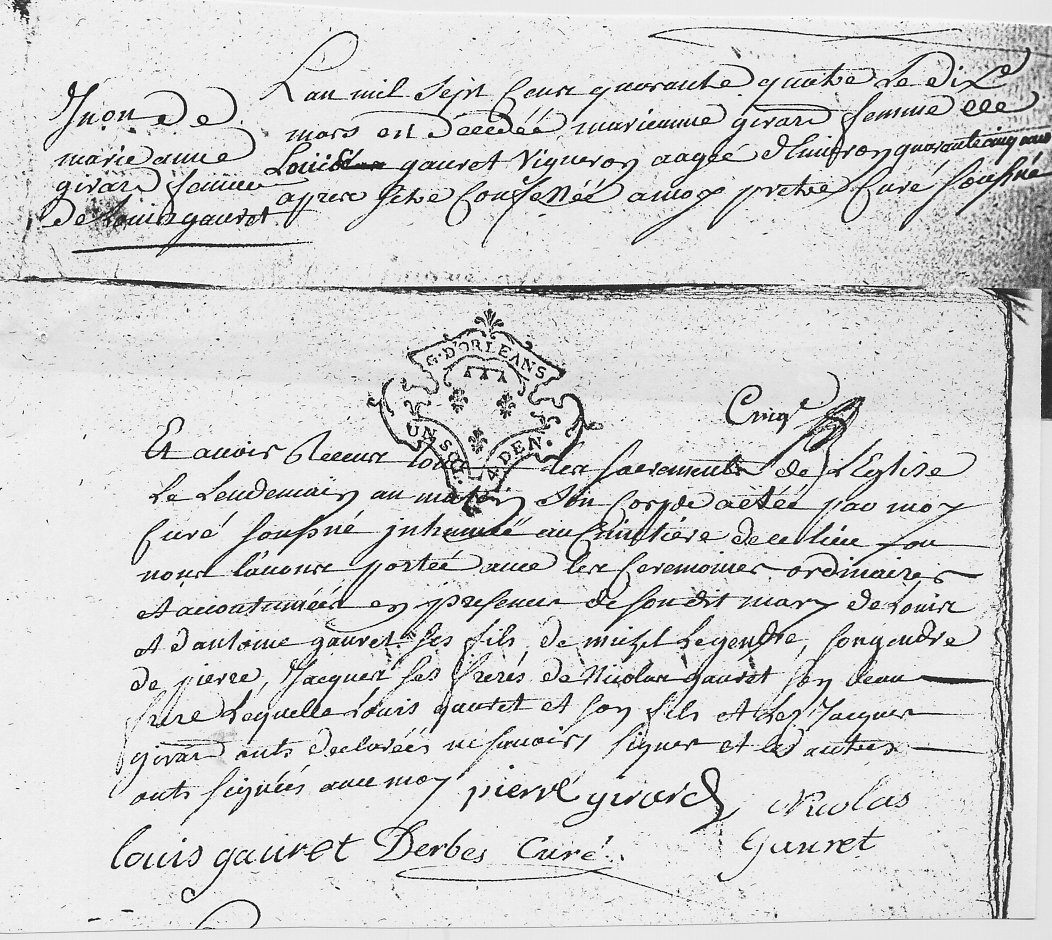 Lan mil Sept Cens quarante quatre Le dix
mars est decedéé marieanne girard femme de
Louis gauret Vigneron aageé d'Environ quarantecinq ans
apres setre Confesséé a moy pretre Curé sousiné
Inon de
marie anne
girard femme
de Louis gauret
G. D'ORLEANS
UN SOL. 4. DEN.
Cinq
Et avoir Receus tous les sacrements de L'Eglise
Le Lendemain au matin Son Corps a etéé par moy
Curé sousiné inhumé au Cimetiére de ce lieu
nous l'avons portéé avec les Ceremonies ordinaires
et acoutuméés en presence de son dit mary de Louis
et d'antoine gauret ses fils, de michel Legendre, son gendre
de pierre, Jacques ses freres de Nicolas gauret son beau
frere Lequelle Louis gauret et son fils et Les Jacques
girard onts declaréés ne savoirs signer et les autres
onts signéés avec moy pierre girard Nicolas
Gauret
louis gauret Derbes Curé